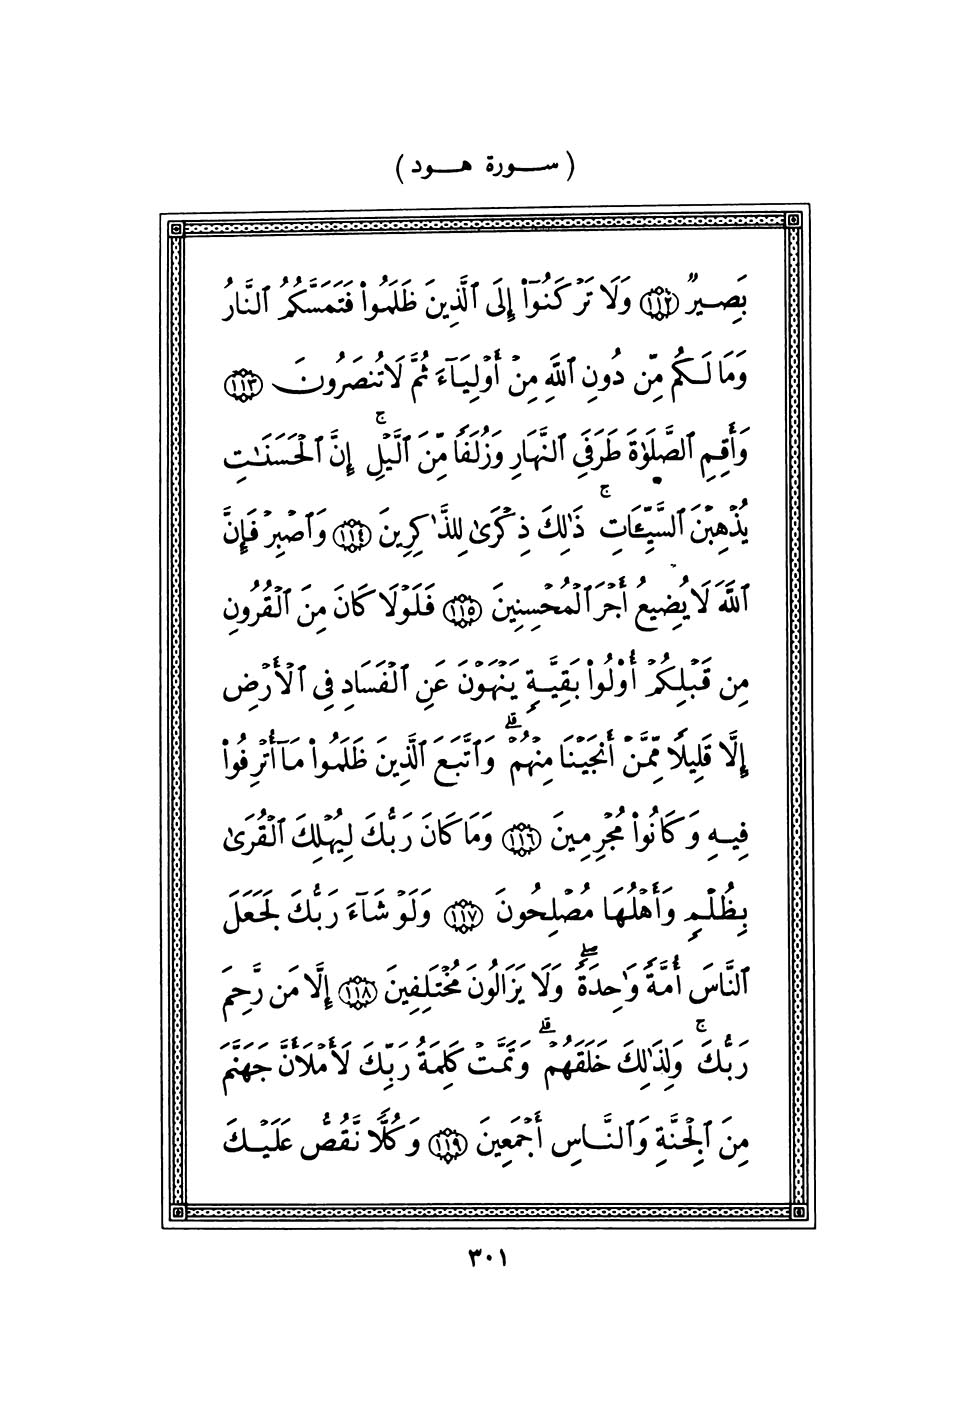 ( ســورة هــود )
بَصِيرٌ ١١٢ وَلَا تَرْكَنُوٓا۟ إِلَى ٱلَّذِينَ ظَلَمُوا۟ فَتَمَسَّكُمُ ٱلنَّارُ
وَمَا لَكُم مِّن دُونِ ٱللَّهِ مِنْ أَوْلِيَآءَ ثُمَّ لَا تُنصَرُونَ ١١٣
وَأَقِمِ ٱلصَّلَوٰةَ طَرَفَىِ ٱلنَّهَارِ وَزُلَفًا مِّنَ ٱلَّيْلِ ۚ إِنَّ ٱلْحَسَنَٰتِ
يُذْهِبْنَ ٱلسَّيِّـَٔاتِ ۚ ذَٰلِكَ ذِكْرَىٰ لِلذَّٰكِرِينَ ١١٤ وَٱصْبِرْ فَإِنَّ
ٱللَّهَ لَا يُضِيعُ أَجْرَ ٱلْمُحْسِنِينَ ١١٥ فَلَوْلَا كَانَ مِنَ ٱلْقُرُونِ
مِن قَبْلِكُمْ أُو۟لُوا۟ بَقِيَّةٍ يَنْهَوْنَ عَنِ ٱلْفَسَادِ فِى ٱلْأَرْضِ
إِلَّا قَلِيلًا مِّمَّنْ أَنجَيْنَا مِنْهُمْ ۗ وَٱتَّبَعَ ٱلَّذِينَ ظَلَمُوا۟ مَآ أُتْرِفُوا۟
فِيهِ وَكَانُوا۟ مُجْرِمِينَ ١١٦ وَمَا كَانَ رَبُّكَ لِيُهْلِكَ ٱلْقُرَىٰ
بِظُلْمٍ وَأَهْلُهَا مُصْلِحُونَ ١١٧ وَلَوْ شَآءَ رَبُّكَ لَجَعَلَ
ٱلنَّاسَ أُمَّةً وَٰحِدَةً ۖ وَلَا يَزَالُونَ مُخْتَلِفِينَ ١١٨ إِلَّا مَن رَّحِمَ
رَبُّكَ ۚ وَلِذَٰلِكَ خَلَقَهُمْ ۗ وَتَمَّتْ كَلِمَةُ رَبِّكَ لَأَمْلَأَنَّ جَهَنَّمَ
مِنَ ٱلْجِنَّةِ وَٱلنَّاسِ أَجْمَعِينَ ١١٩ وَكُلًّا نَّقُصُّ عَلَيْكَ
٣٠١